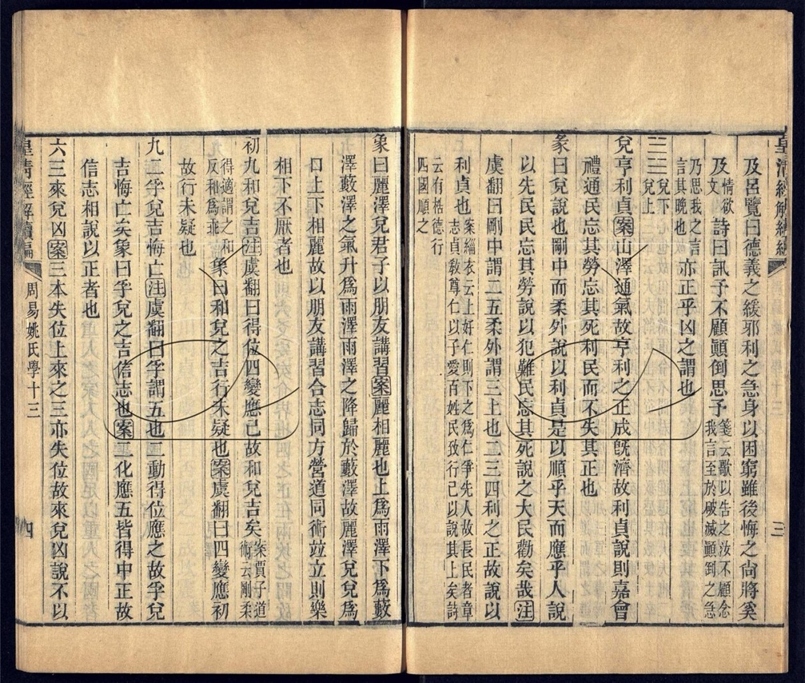 皇清經解續編
及呂覽曰德義之緩邪利之急身以困窮雖後悔之尙將奚
及情欲文詩曰訊予不顧顚倒思予箋云歌以告之汝不顧念我言至於破滅顚倒之急
乃思我之言言其晩也亦正乎凶之謂也
三
☱☱兌下兌上
兌亨利貞案山澤通氣故亨利之正成旣濟故利貞說則嘉會
禮通民忘其勞忘其死利民而不失其正也
彖曰兌說也剛中而柔外說以利貞是以順乎天而應乎人說
以先民民忘其勞說以犯難民忘其死說之大民勸矣哉注
虞翻曰剛中謂二五柔外謂三上也二三四利之正故說以
利貞也案緇衣云上好仁則下之爲仁爭先人故長民者章志貞敎尊仁以子愛百姓民致行己以說其上矣詩
云有梏德行四國順之
象曰麗澤兌君子以朋友講習案麗相麗也上爲雨澤下爲藪
澤藪澤之氣升爲雨澤雨澤之降歸於藪澤故麗澤兌兌爲
口上下相麗故以朋友講習合志同方營道同術竝立則樂
相下不厭者也
初九和兌吉注虞翻曰得位四變應己故和兌吉矣案賈子道術云剛柔
得適謂之和反和爲乖象曰和兌之吉行未疑也案虞翻曰四變應初
故行未疑也
九二孚兌吉悔亡注虞翻曰孚謂五也二動得位應之故孚兌
吉悔亡矣象曰孚兌之吉信志也案二化應五皆得中正故
信志相說以正者也
六三來兌凶案三本失位上來之三亦失位故來兌凶說不以
皇清經解續編
周易姚氏學十三
四